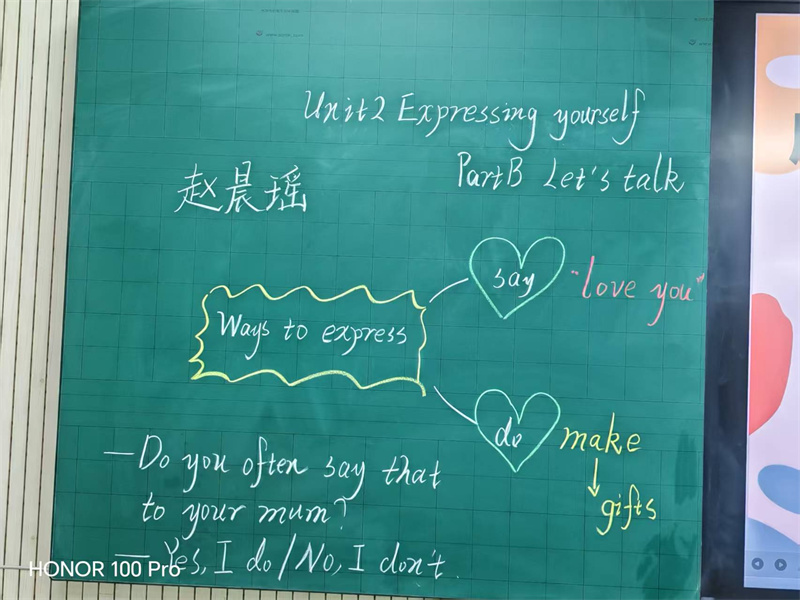 Unit2 Expressing yourself
PartB Let's talk
赵晨瑶
Ways to express
say
"love you"
do
make
gifts
—Do you often say that
to your mum?
— Yes, I do/No, I don't.
HONOR 100 Pro